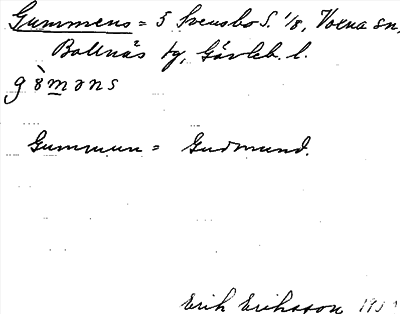 Gummens = 5 Svensbo S. 1/8, Voxna sn,
Bollnäs tg, Gävleb. l.
gὸməns
Gummun = Gudmund.
Erik Eriksson